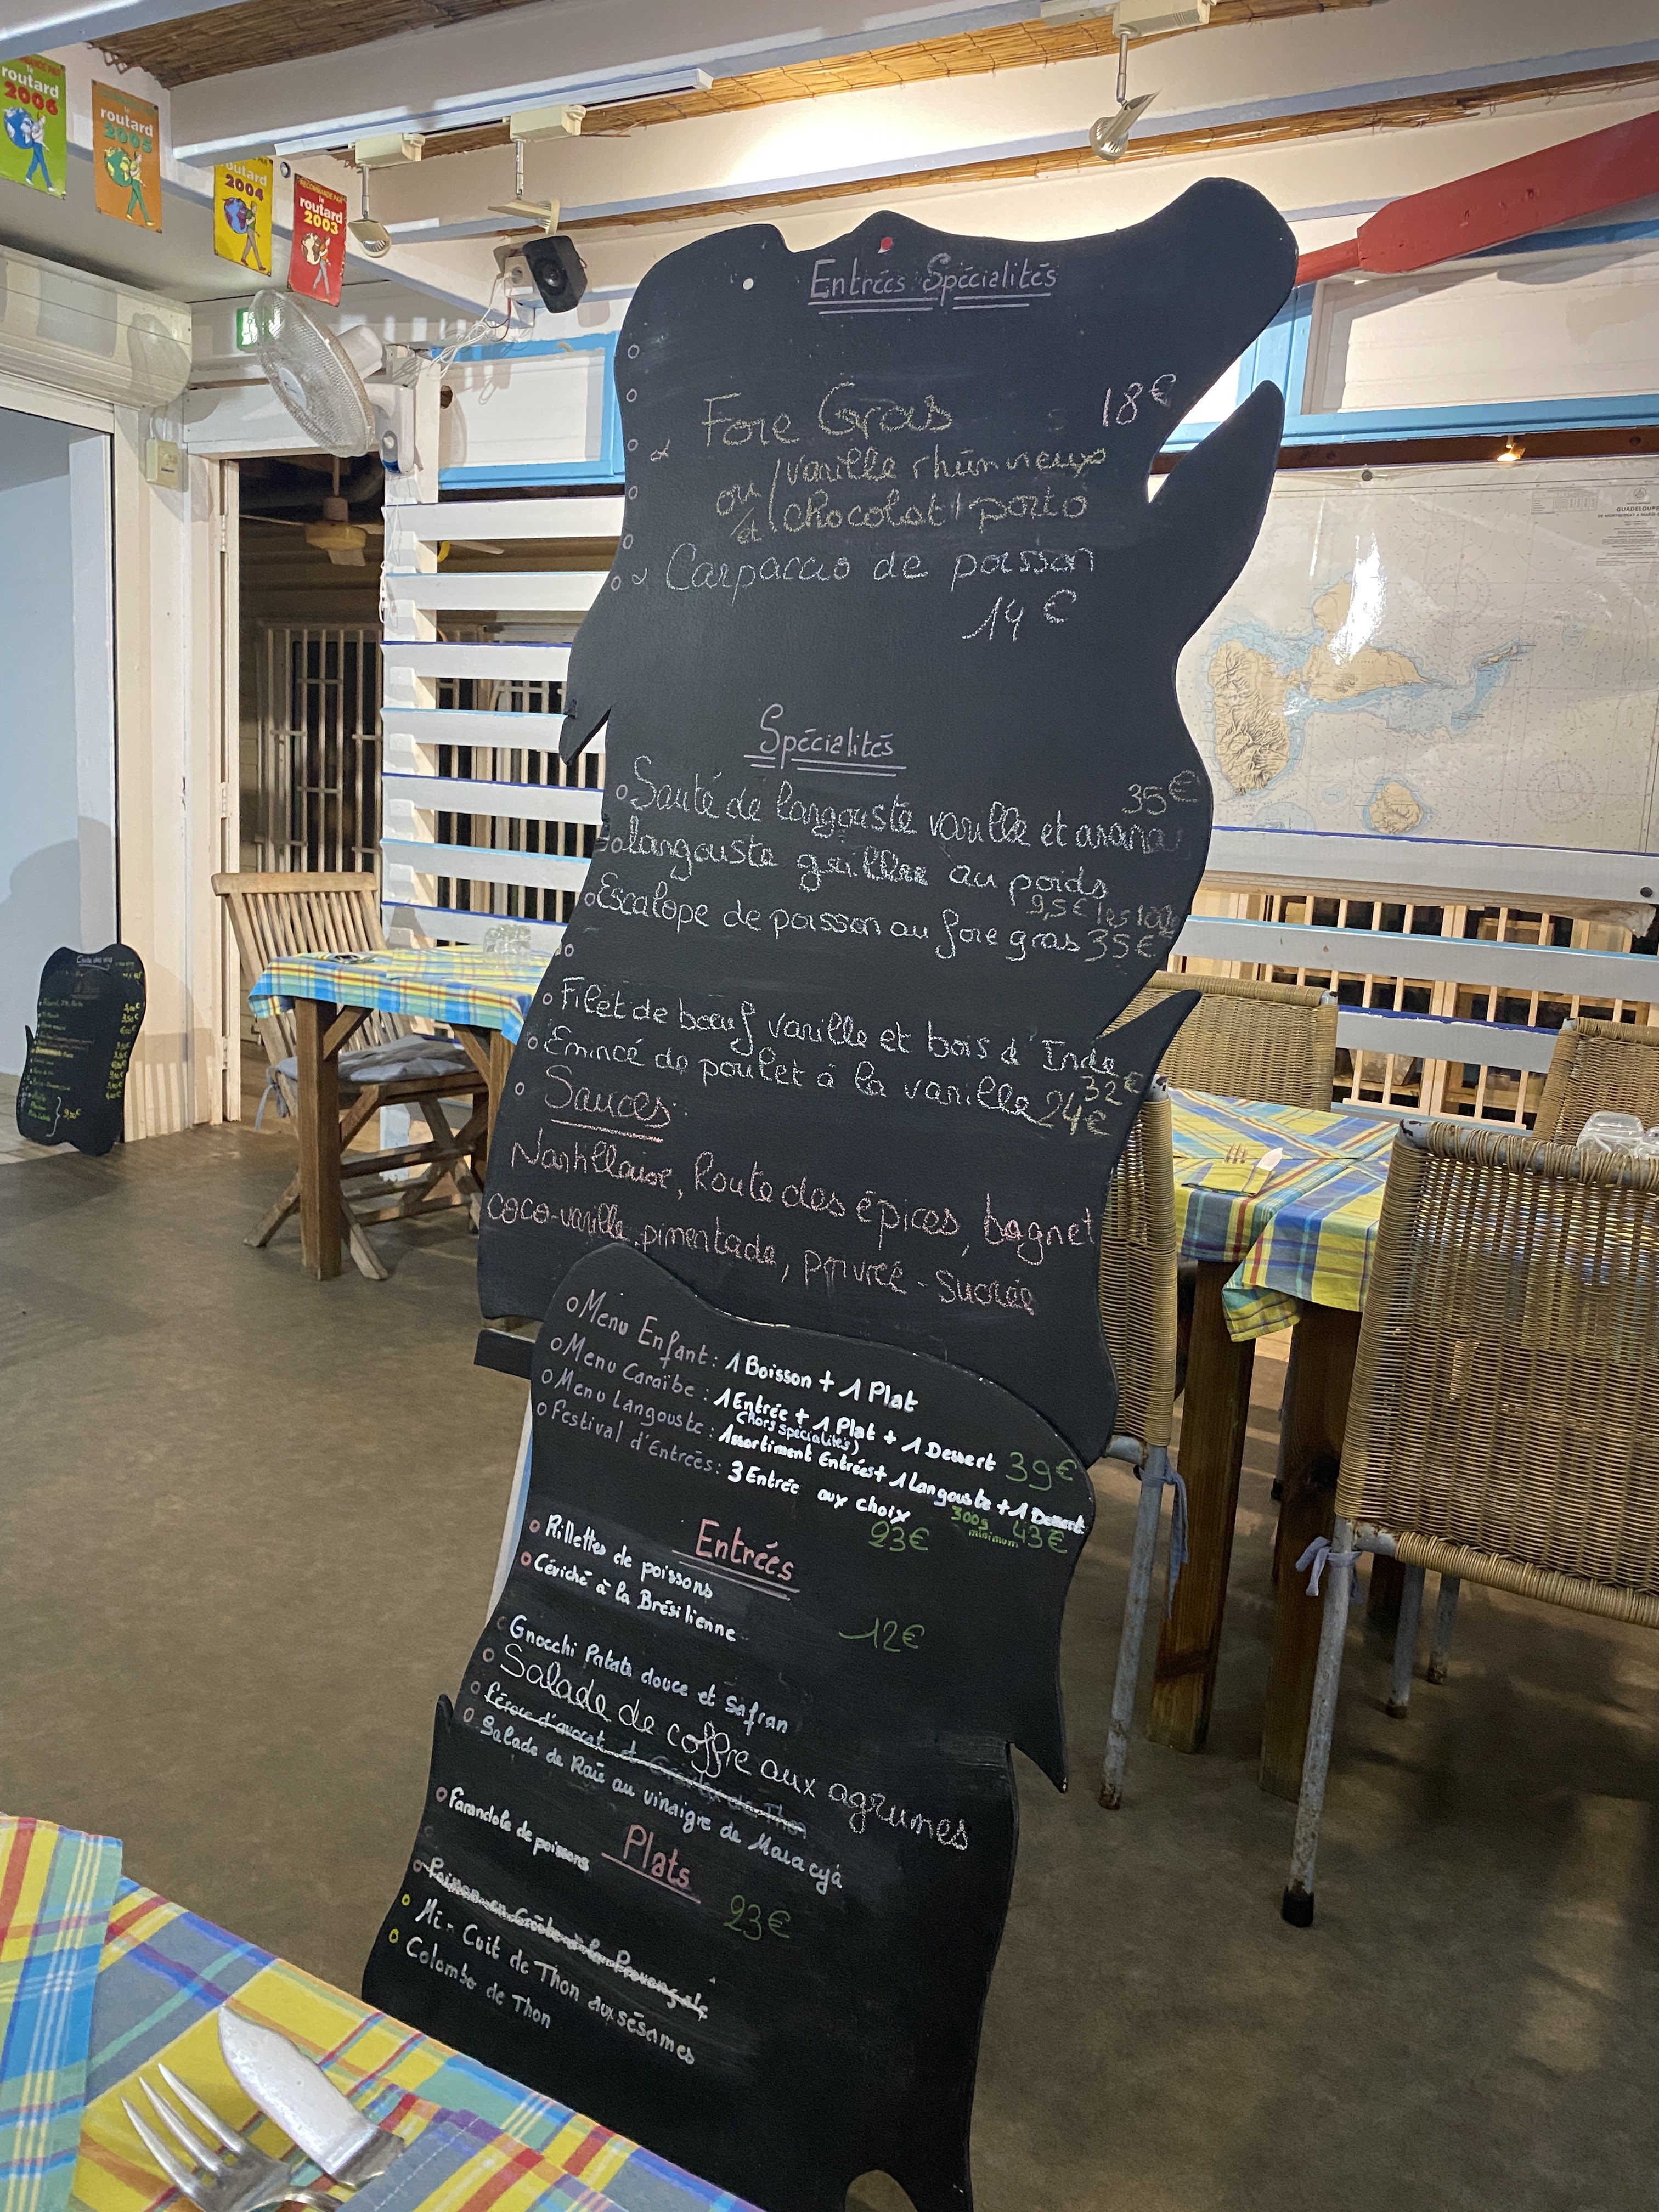 routard
2006
routard
2005
routard
2004
RECOMMANDÉ PAR
le
routard
2003
GUADELOUPE
Entrées Spécialités
Foie Gras 18€
ou vanille rhum vieux
et chocolat porto
Carpaccio de poisson
14€
Spécialités
35€
Sauté de langouste vanille et
langouste grillée au poids
9,5€ les 100g
Escalope de poisson au foie gras 35€
Filet de bœuf vanille et bois d'Inde
32€
Emincé de poulet à la vanille 24€
Sauces:
Route des épices, bagnet
coco-vanille, pimentade, poivrée-sucrée
Menu Enfant: 1 Boisson + 1 Plat
Menu Caraïbe: 1 Entrée + 1 Plat + 1 Dessert 39€
(hors spécialités)
Menu Langouste: 1 assortiment Entrées + 1 Langouste + 1 Dessert
300g minimum 43€
Festival d'Entrées: 3 Entrée aux choix
23€
Entrées
Rillettes de poissons
Céviché à la Brésilienne
12€
Gnocchi Patate douce et Safran
Salade de coffre aux agrumes
Féroce d'avocat et de Thon
Salade de Raie au vinaigre de Maracyá
Plats
Farandole de poissons
23€
Poisson en Croûte à la Provençale
Mi-Cuit de Thon aux sésames
Colombo de Thon